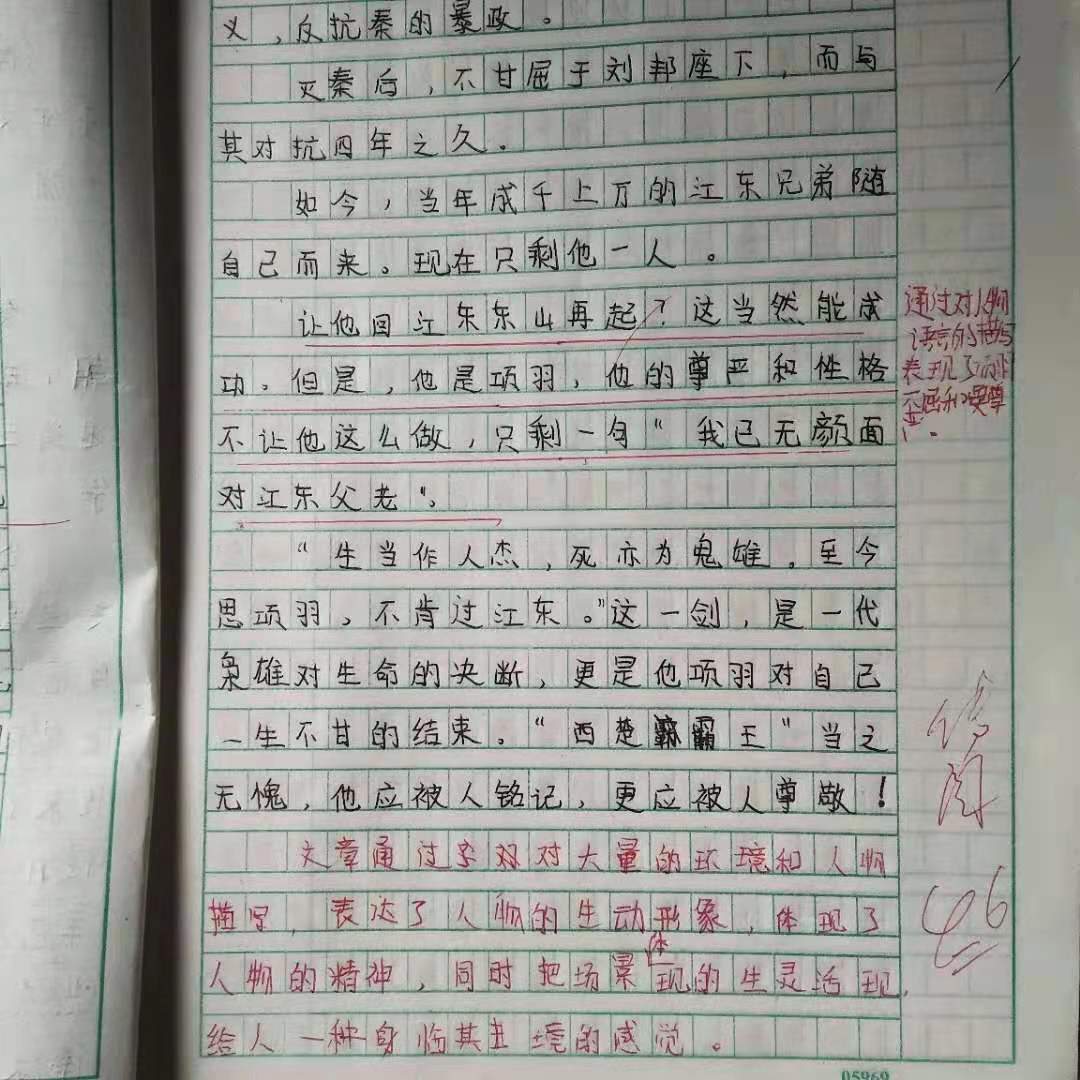 义，反抗秦的暴政。
灭秦后，不甘屈于刘邦座下，而与
其对抗四年之久。
如今，当年成千上万的江东兄弟随
自己而来。现在只剩他一人。
让他回江东东山再起？这当然能成
功。但是，他是项羽，他的尊严和性格
不让他这么做，只剩一句“我已无颜面
对江东父老”。
“生当作人杰，死亦为鬼雄。至今
思项羽，不肯过江东。”这一剑，是一代
枭雄对生命的决断，更是他项羽对自己
一生不甘的结束。“西楚霸王”当之
无愧，他应被人铭记，更应被人尊敬！
文章通过多双对大量的环境和人物
描写，表达了人物的生动形象，体现了
人物的精神，同时把场景体现的生灵活现，
给人一种身临其境的感觉。
通过对人物
语言的描写
表现了
不屈和尊
46
05969